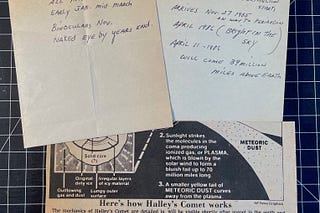 EARLY JAN. MID MARCH
BINOCULARS NOV.
NAKED EYE BY YEARS END.
ARRIVES NOV. 27 1985
APRIL 1986 (BRIGHT IN THE
SKY)
APRIL 11-1986
WILL COME 39 MILLION
MILES ABOVE EARTH
Solid core
Original dirty ice
Irregular layers of icy material
Outflowing gas and dust
Lumpy outer surface
2. Sunlight strikes
the molecules in the
coma producing
ionized gas, or PLASMA,
which is blown by the
solar wind to form a
bluish tail up to 70
million miles long
3. A smaller yellow tail of
METEORIC DUST curves
away from the plasma
METEORIC
DUST
Here's how Halley's Comet works
The mechanics of Halley's Comet are detailed